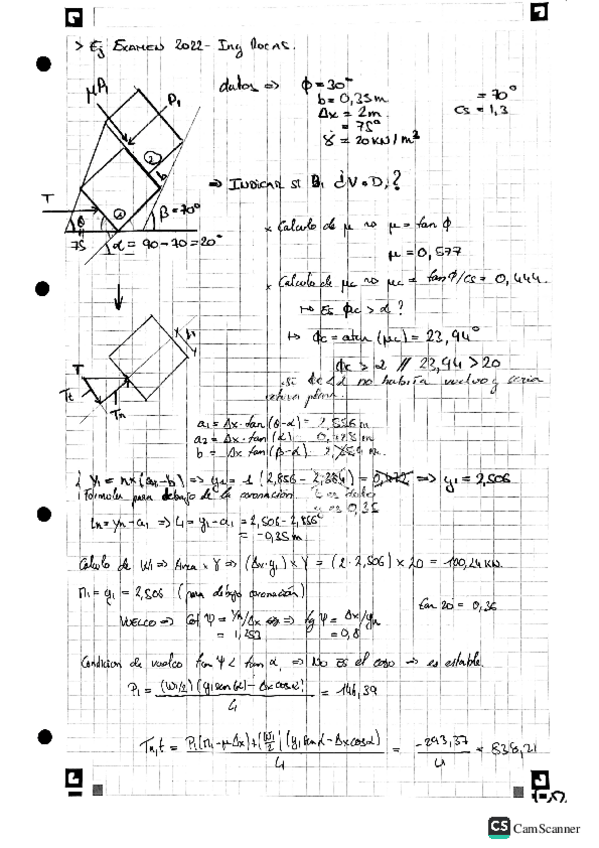 > Ej EXAMEN 2022 - Ing ROCAS.
datos => ϕ = 30°
b = 0,35 m
Δx = 2 m
= 75°
γ = 20 KN/m³
= 70°
CS = 1,3
μP₁
P₁
2
b
T
θ
1
β = 70°
75
α = 90 - 70 = 20°
=> INDICAR SI B₁ ¿V o D?
* Calculo de μ => μ = tan ϕ
μ = 0,577
* Calculo de μc => μc = tanϕ/cs = 0,444.
↦ Es ϕc > α?
↦ ϕc = atan (μc) = 23,94°
ϕc > α // 23,94 > 20
si ϕc < α no habria vuelco y seria
T
Tt
Tn
a₁ = Δx · tan (θ-α) = 2,856 m
a₂ = Δx · tan (α)
b = Δx tan (β-α)
=> y₁ = 2,506
Formulas para debajo de la coronación.
0,35
Ln = yn - a₁ => L₁ = y₁ - a₁ = 2,506 - 2,856
= -0,35 m
Calculo de W₁ => Area × γ => (Δx · y₁) × γ = (2 · 2,506) × 20 = 100,24 KN.
M₁ = y₁ = 2,506 (para debajo coronación)
tan 20 = 0,36
VUELCO => Cot ψ = yn/Δx => tg ψ = Δx/yn
= 1,253 = 0,8
Condicion de vuelco tan ψ < tan α, => No ES el caso => es estable.
P₁ = (W₁/2) (y₁ sen(α) - Δx cos α) / L₁ = 146,39
Tn,t = P₁(M₁ - μΔx) + (W₁/2) (y₁ sen α - Δx cos α) / L₁ = -293,37 / L₁ = 838,21
CS CamScanner